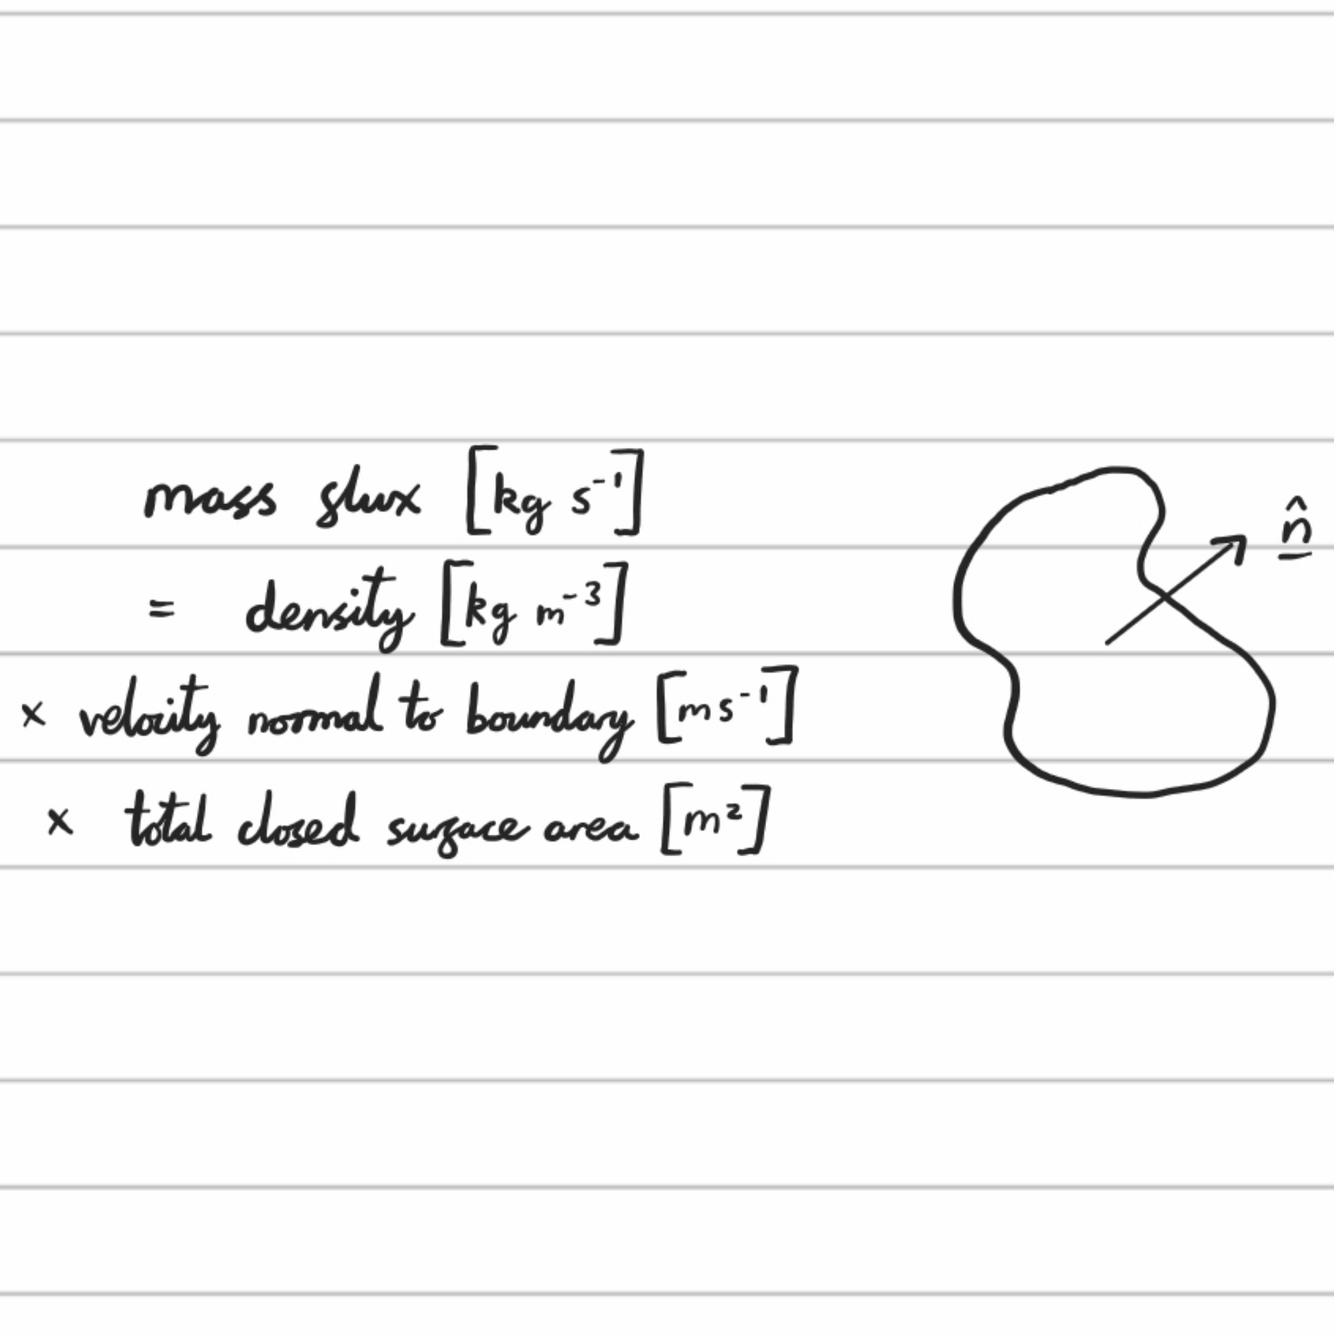 mass flux [kg s⁻¹]
= density [kg m⁻³]
× velocity normal to boundary [m s⁻¹]
× total closed surface area [m²]
n̲̂